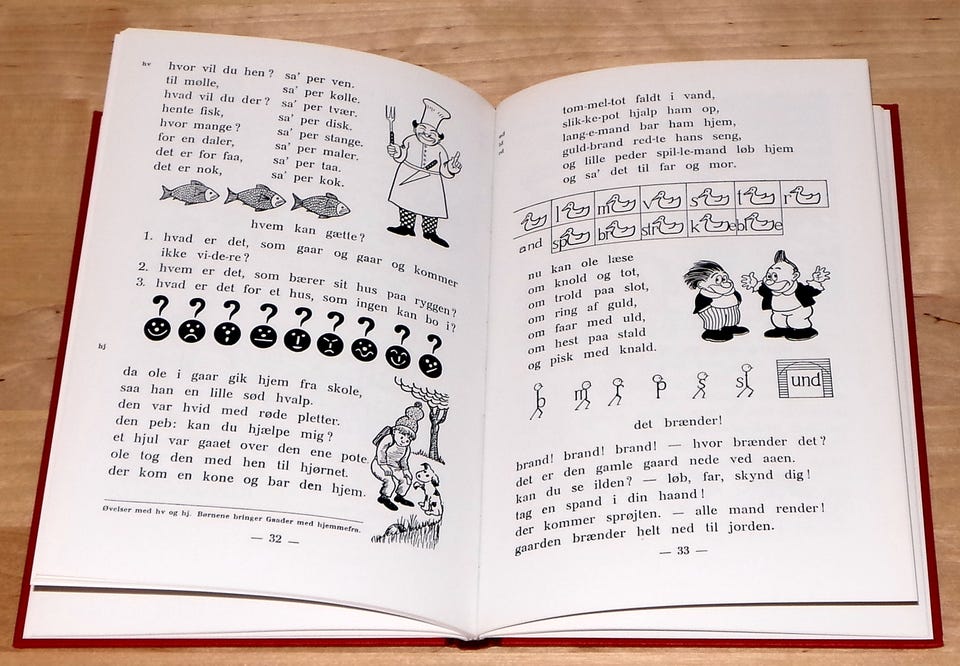 hv
hvor vil du hen? sa' per ven.
til mølle, sa' per kølle.
hvad vil du der? sa' per tvær.
hente fisk, sa' per disk.
hvor mange? sa' per stange.
for en daler, sa' per maler.
det er for faa, sa' per taa.
det er nok, sa' per kok.
hvem kan gætte?
1. hvad er det, som gaar og gaar og kommer
ikke vi-de-re?
2. hvem er det, som bærer sit hus paa ryggen?
3. hvad er det for et hus, som ingen kan bo i?
? ? ? ? ? ? ? ? ?
hj
da ole i gaar gik hjem fra skole,
saa han en lille sød hvalp.
den var hvid med røde pletter.
den peb: kan du hjælpe mig?
et hjul var gaaet over den ene pote.
ole tog den med hen til hjørnet.
der kom en kone og bar den hjem.
Øvelser med hv og hj. Børnene bringer Gaader med hjemmefra.
— 32 —
tom-mel-tot faldt i vand,
slik-ke-pot hjalp ham op,
lang-e-mand bar ham hjem,
guld-brand red-te hans seng,
og lille peder spil-le-mand løb hjem
og sa' det til far og mor.
nd
ld
rd
l m v s t r
and sp br str k e bl e
nu kan ole læse
om knold og tot,
om trold paa slot,
om ring af guld,
om faar med uld,
om hest paa stald
og pisk med knald.
b m r p s sl und
det brænder!
brand! brand! brand! — hvor brænder det?
det er den gamle gaard nede ved aaen.
kan du se ilden? — løb, far, skynd dig!
tag en spand i din haand!
der kommer sprøjten. — alle mand render!
gaarden brænder helt ned til jorden.
— 33 —